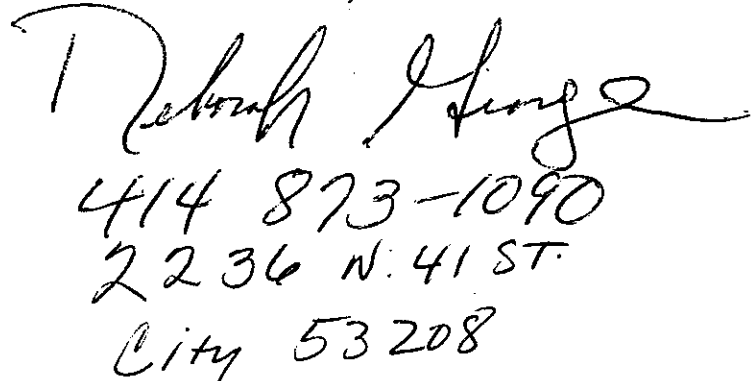 Deborah George
414 873-1090
2236 N. 41 ST.
City 53208